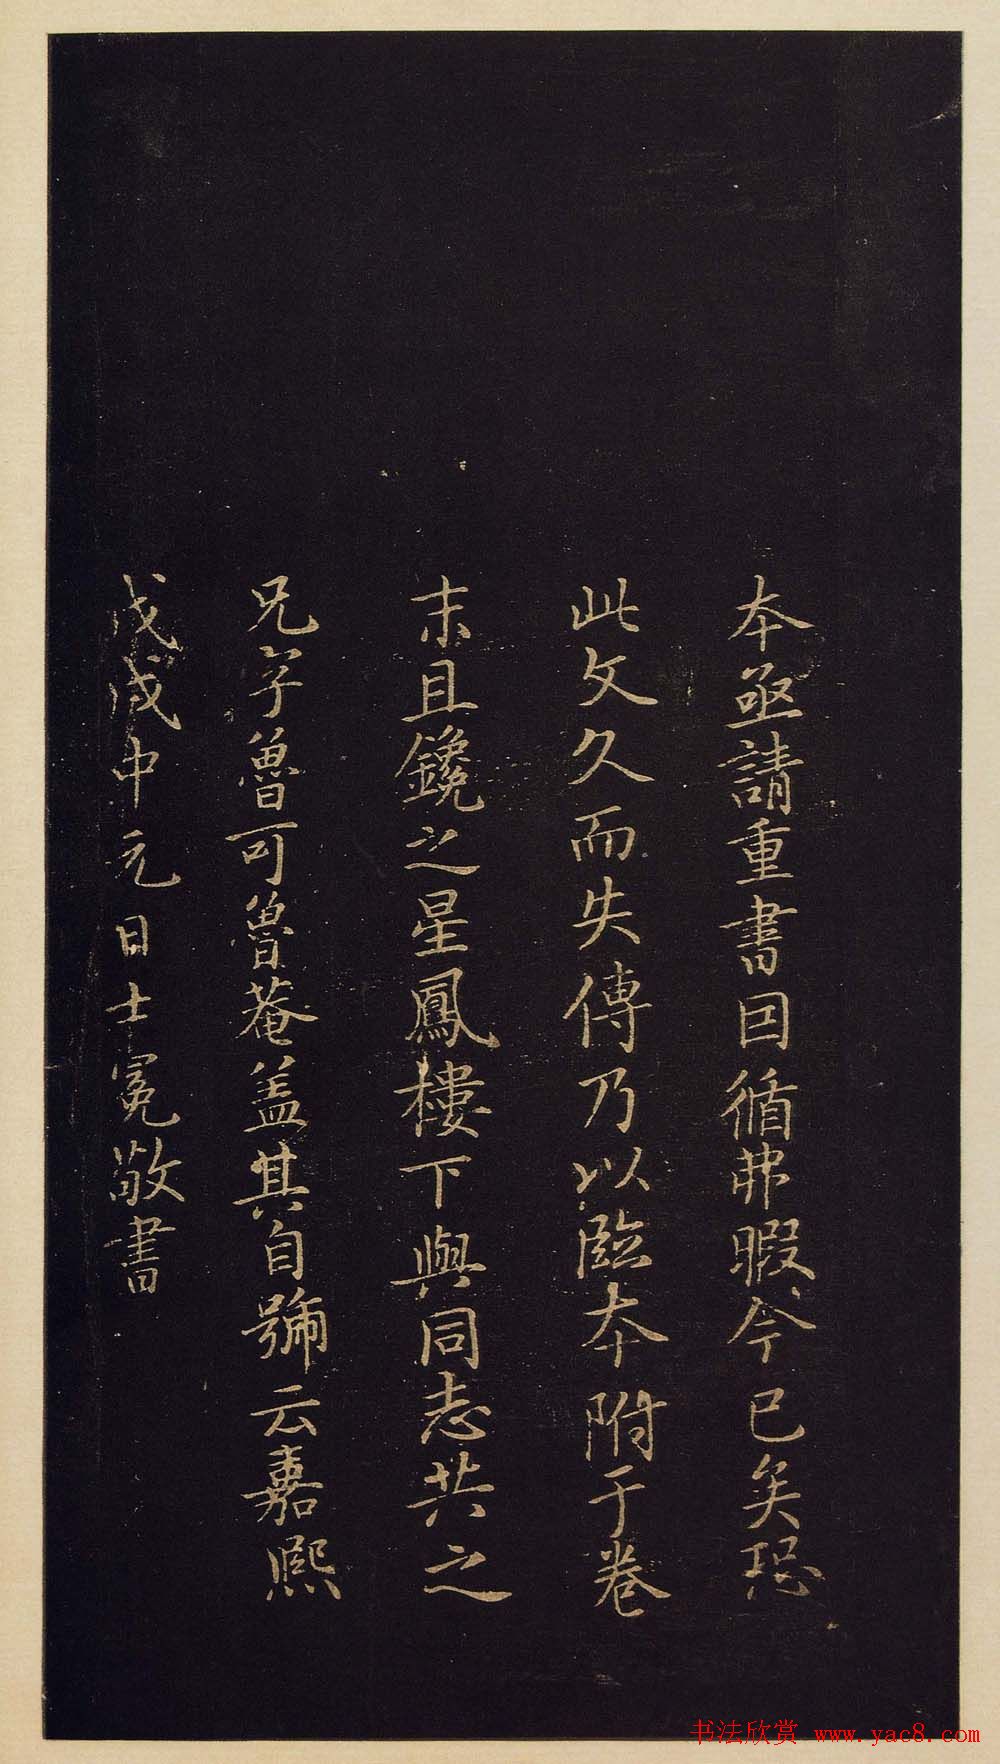 本亟請重書因循弗暇今已矣恐
此文久而失傳乃以臨本附于卷
末且鑱之星鳳樓下與同志共之
兄字魯可魯菴蓋其自號云嘉熙
戊戌中元日士冕敬書
书法欣赏 www.yac8.com